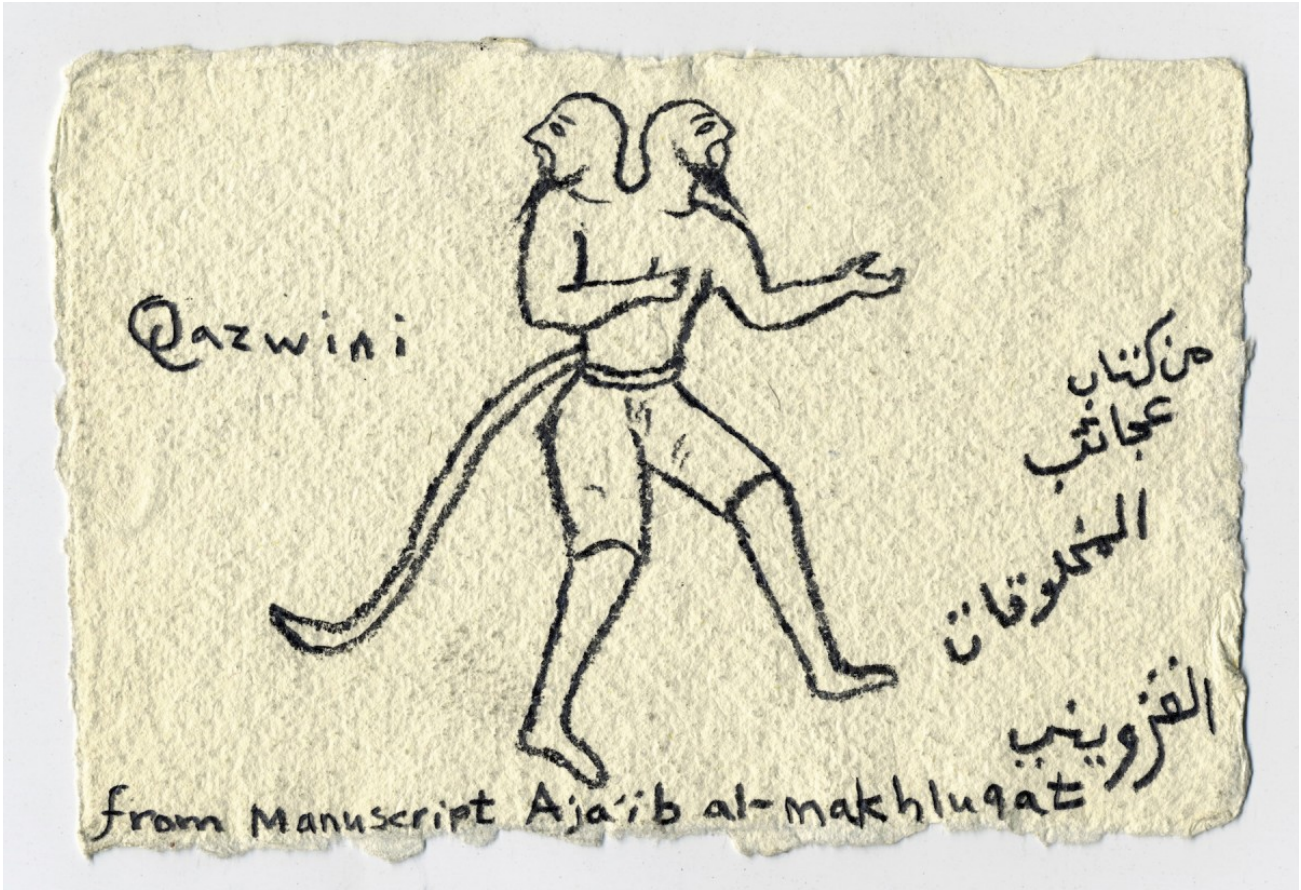 Qazwini
من كتاب
عجائب
المخلوقات
القزويني
from Manuscript Aja'ib al-makhluqat